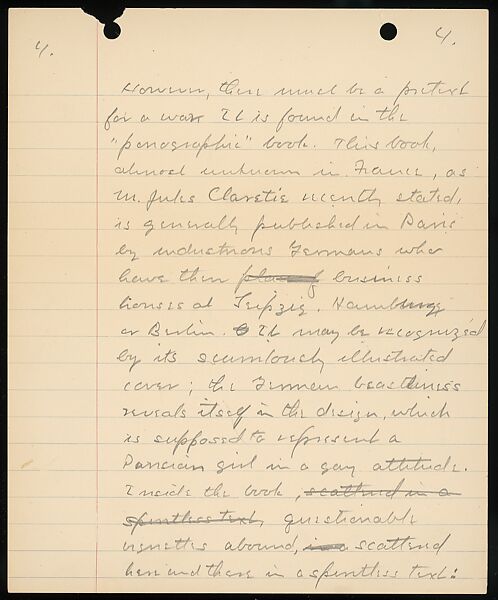 4. 4.
However, there must be a pretext
for a war. It is found in the
"pornographic" book. This book,
almost unknown in France, as
M. Jules Claretie recently stated,
is generally published in Paris
by industrious Germans who
have their business
houses at Leipzig, Hamburg
or Berlin. It may be recognized
by its scandalously illustrated
cover; the German beastliness
reveals itself in the design, which
is supposed to represent a
Parisian girl in a gay attitude.
Inside the book, scattered in a
spiritless text, questionable
vignettes abound, scattered
here and there in a spiritless text: